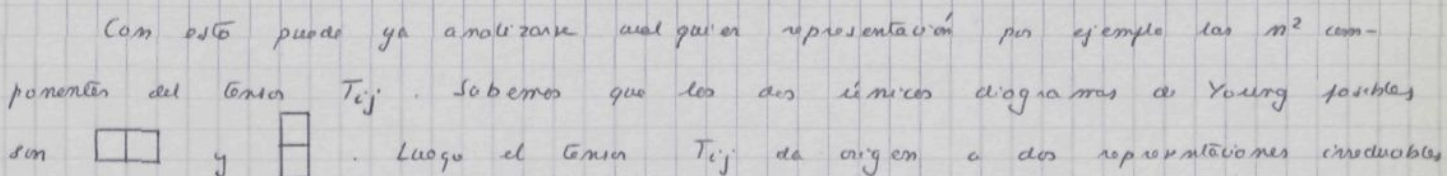 Con esto puede ya analizarse cualquier representación por ejemplo las n² com-
ponentes del tensor Tij. Sabemos que los dos únicos diagramas de Young posibles
son y . Luego el tensor Tij da origen a dos representaciones irreducibles